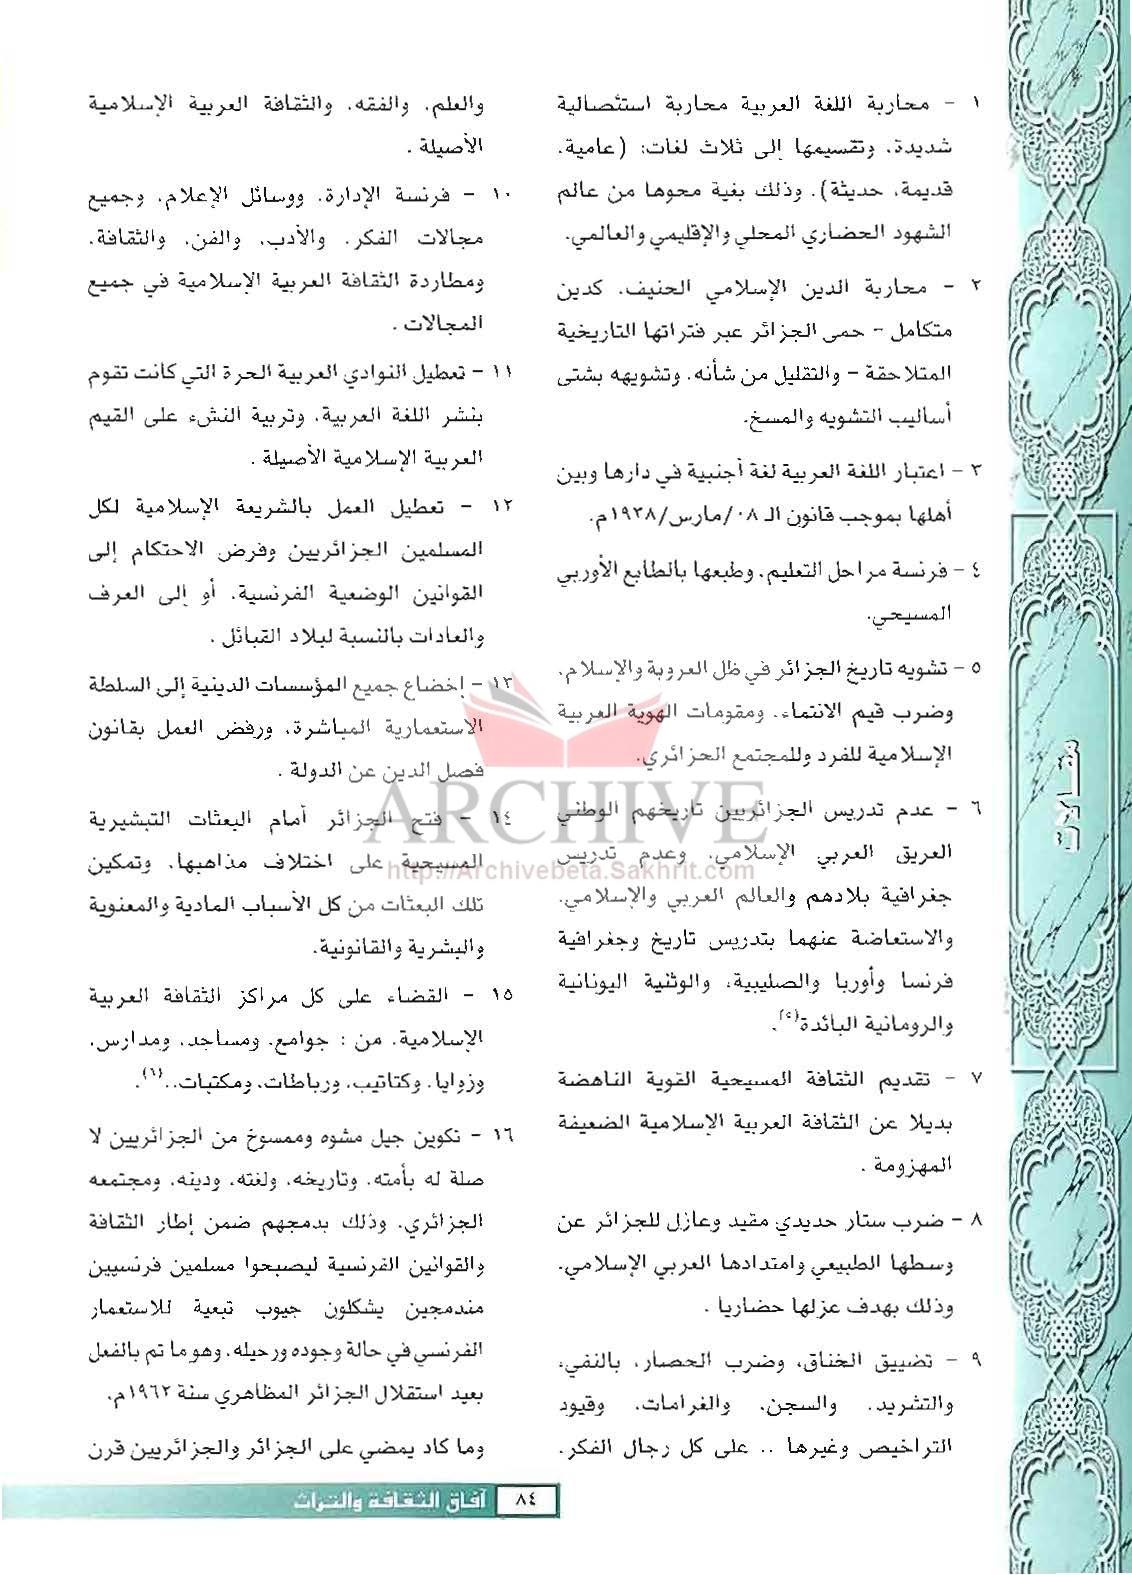 ١ - محاربة اللغة العربية محاربة استئصالية
شديدة، وتقسيمها إلى ثلاث لغات: (عامية،
قديمة، حديثة). وذلك بغية محوها من عالم
الشهود الحضاري المحلي والإقليمي والعالمي.
٢ - محاربة الدين الإسلامي الحنيف، كدين
متكامل - حمى الجزائر عبر فتراتها التاريخية
المتلاحقة - والتقليل من شأنه، وتشويهه بشتى
أساليب التشويه والمسخ.
٣ - اعتبار اللغة العربية لغة أجنبية في دارها وبين
أهلها بموجب قانون الـ ٠٨/مارس/١٩٣٨م.
٤ - فرنسة مراحل التعليم، وطبعها بالطابع الأوربي
المسيحي.
٥ - تشويه تاريخ الجزائر في ظل العروبة والإسلام،
وضرب قيم الانتماء، ومقومات الهوية العربية
الإسلامية للفرد وللمجتمع الجزائري.
٦ - عدم تدريس الجزائريين تاريخهم الوطني
العريق العربي الإسلامي، وعدم تدريس
جغرافية بلادهم والعالم العربي والإسلامي،
والاستعاضة عنهما بتدريس تاريخ وجغرافية
فرنسا وأوربا والصليبية، والوثنية اليونانية
والرومانية البائدة(٥).
٧ - تقديم الثقافة المسيحية القوية الناهضة
بديلا عن الثقافة العربية الإسلامية الضعيفة
المهزومة .
٨ - ضرب ستار حديدي مقيد وعازل للجزائر عن
وسطها الطبيعي وامتدادها العربي الإسلامي،
وذلك بهدف عزلها حضاريا .
٩ - تضييق الخناق، وضرب الحصار، بالنفي،
والتشريد، والسجن، والغرامات، وقيود
التراخيص وغيرها .. على كل رجال الفكر،
والعلم، والفقه، والثقافة العربية الإسلامية
الأصيلة .
١٠ - فرنسة الإدارة، ووسائل الإعلام، وجميع
مجالات الفكر، والأدب، والفن، والثقافة،
ومطاردة الثقافة العربية الإسلامية في جميع
المجالات .
١١ - تعطيل النوادي العربية الحرة التي كانت تقوم
بنشر اللغة العربية، وتربية النشء على القيم
العربية الإسلامية الأصيلة .
١٢ - تعطيل العمل بالشريعة الإسلامية لكل
المسلمين الجزائريين وفرض الاحتكام إلى
القوانين الوضعية الفرنسية، أو إلى العرف
والعادات بالنسبة لبلاد القبائل .
١٣ - إخضاع جميع المؤسسات الدينية إلى السلطة
الاستعمارية المباشرة، ورفض العمل بقانون
فصل الدين عن الدولة .
١٤ - فتح الجزائر أمام البعثات التبشيرية
المسيحية على اختلاف مذاهبها، وتمكين
تلك البعثات من كل الأسباب المادية والمعنوية
والبشرية والقانونية.
١٥ - القضاء على كل مراكز الثقافة العربية
الإسلامية، من : جوامع، ومساجد، ومدارس،
وزوايا، وكتاتيب، ورباطات، ومكتبات..(٦).
١٦ - تكوين جيل مشوه وممسوخ من الجزائريين لا
صلة له بأمته، وتاريخه، ولغته، ودينه، ومجتمعه
الجزائري، وذلك بدمجهم ضمن إطار الثقافة
والقوانين الفرنسية ليصبحوا مسلمين فرنسيين
مندمجين يشكلون جيوب تبعية للاستعمار
الفرنسي في حالة وجوده ورحيله، وهو ما تم بالفعل
بعيد استقلال الجزائر المظاهري سنة ١٩٦٢م.
وما كاد يمضي على الجزائر والجزائريين قرن
مقالات
ARCHIVE
http://Archivebeta.Sakhrit.com
٨٤ آفاق الثقافة والتراث